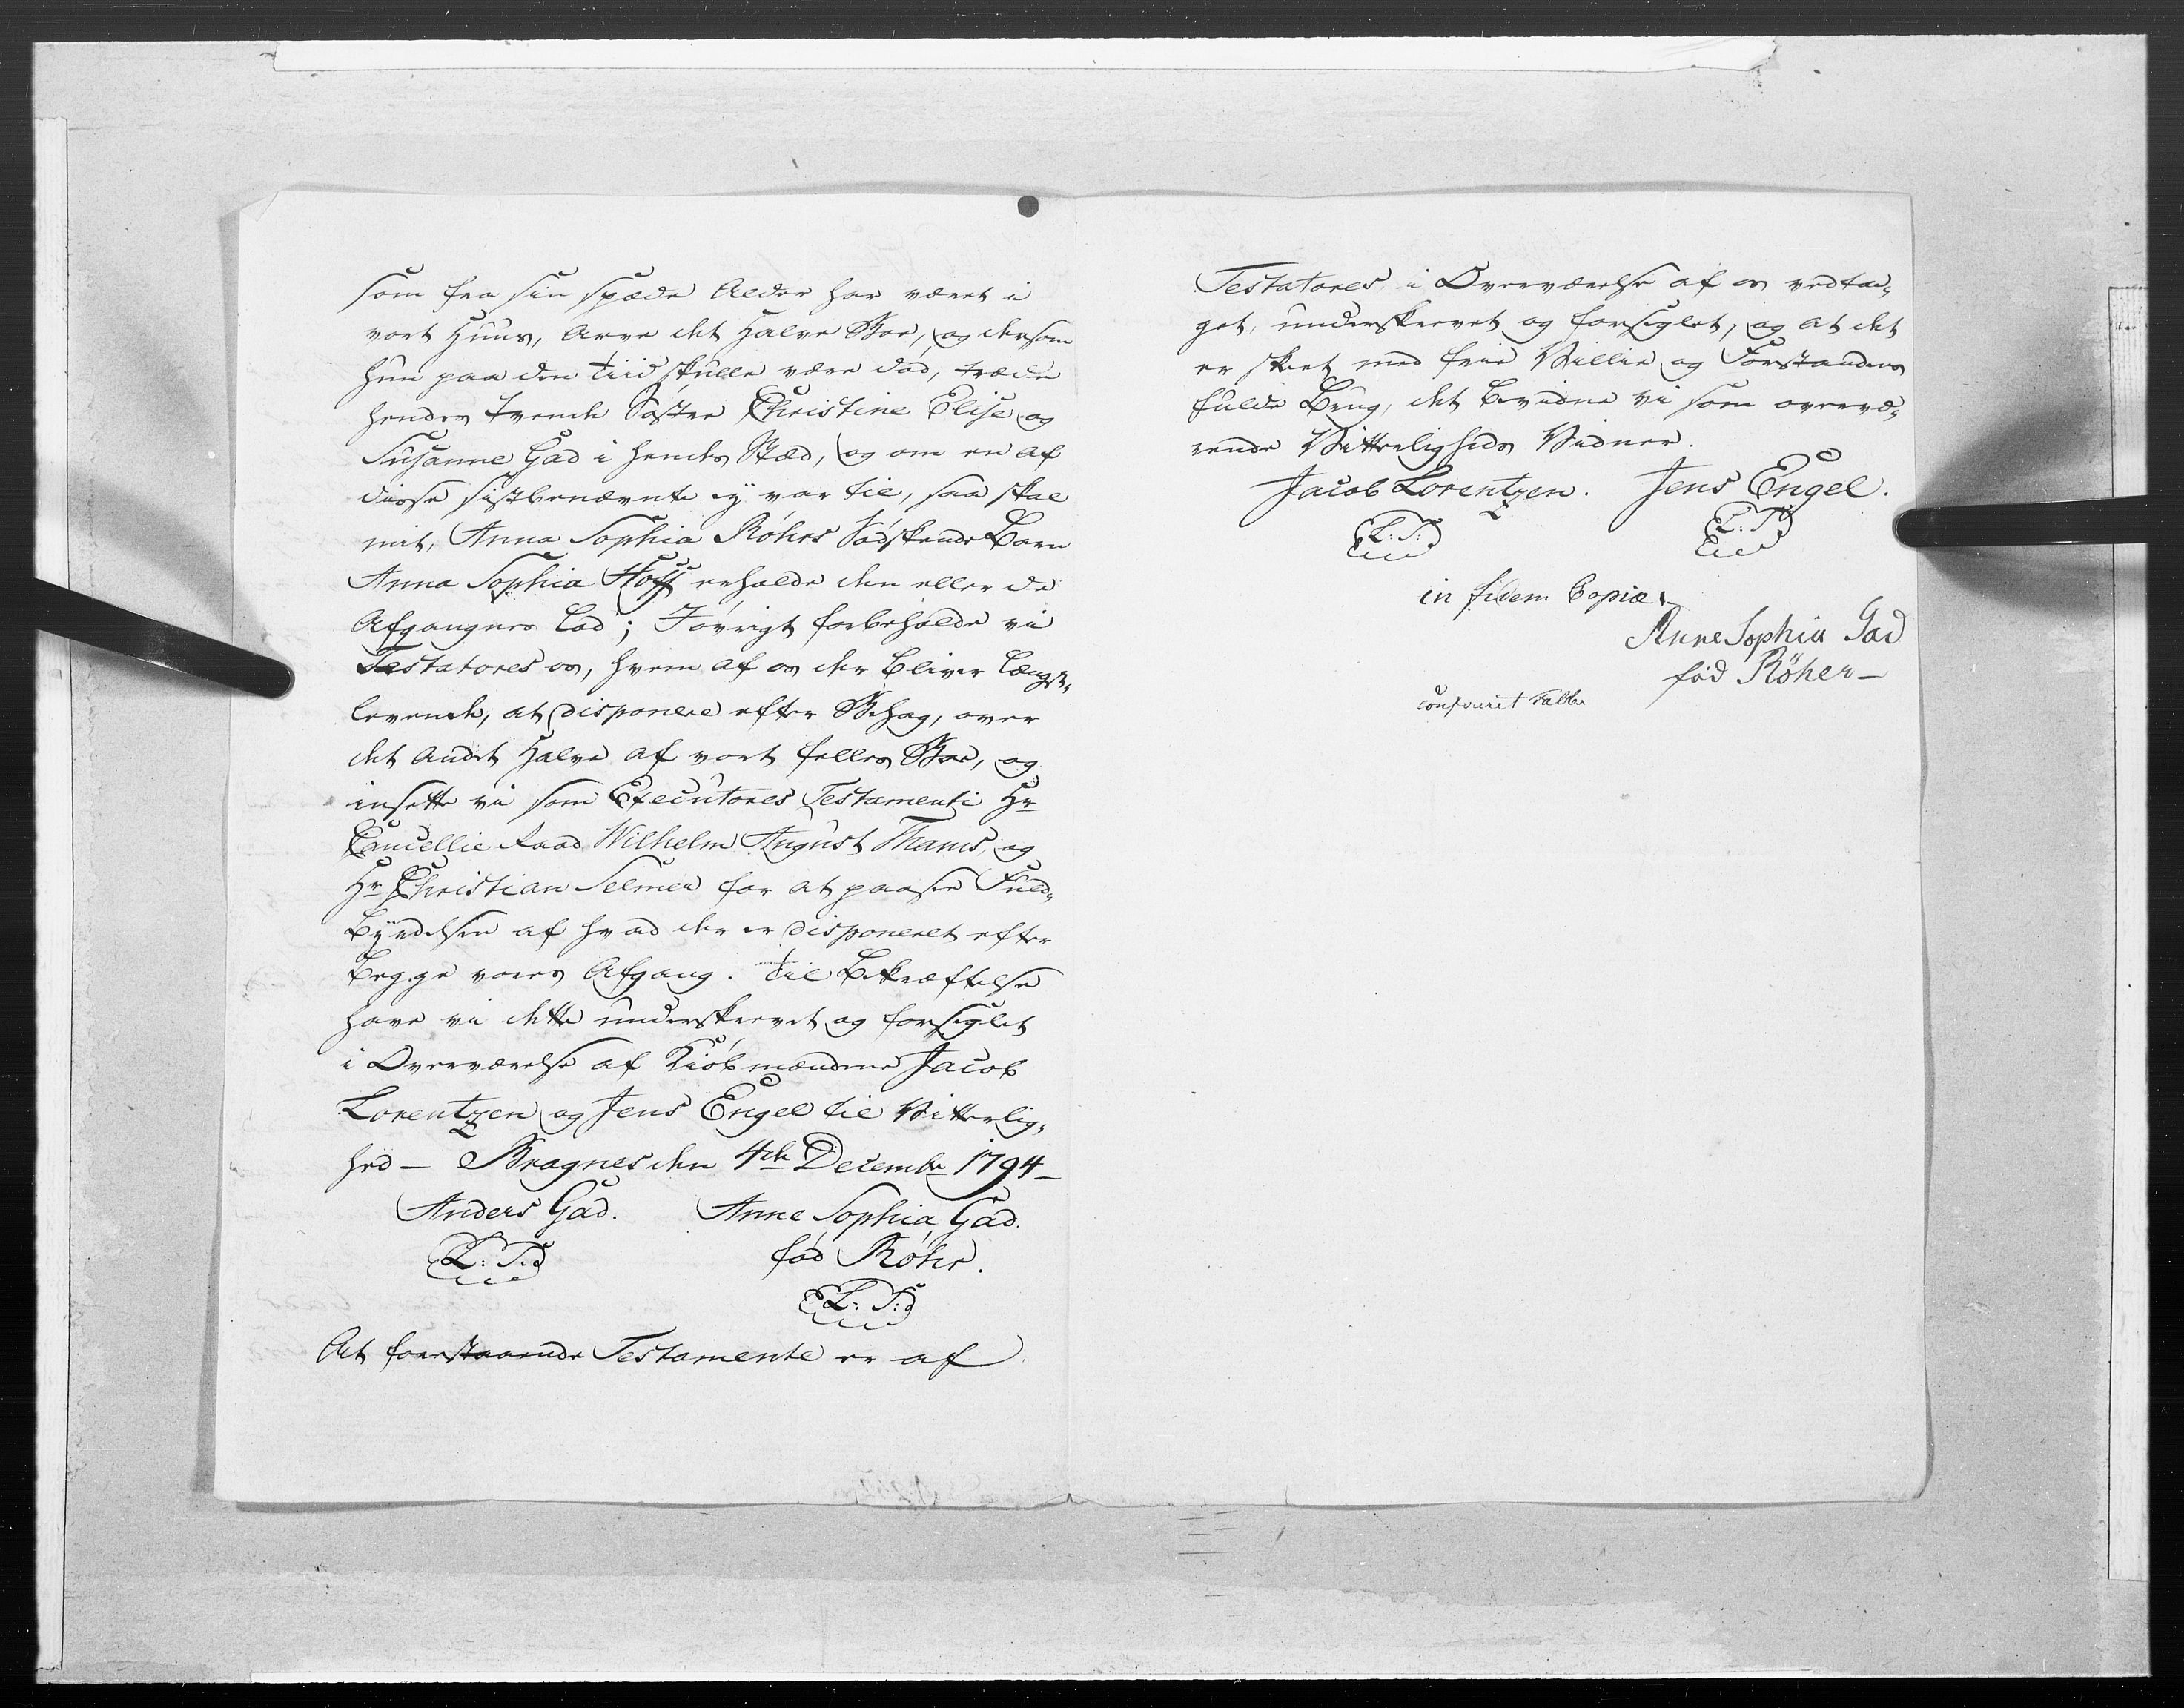 som fra sin spæde Alder har været i
vort Huus, arve det halve Boe, og dersom
hun paa den tiid skulle være død, træde
hendes tvende Søstre Christine Elise og
Susanne Gad i hendes Stæd, og om en af
disse sistbenævnte ej var til, saa skal
mit, Anna Sophia Röhrs Södskende Barn
Anna Sophia Hoff erholde den eller de
Afgangnes Lod; Jøvrigt forbeholde vi
Testatores os, hvem af os der bliver længst-
levende, at disponere efter Behag, over
det andet halve af vort felles Boe, og
insette vi som Executores Testamenti Hr
Cancellie Raad Wilhelm August Thams, og
Hr Christian Selmer for at paasee Fuld-
byrdelsen af hvad der er disponeret efter
begge voers Afgang. til Bekræftelse
have vi dette underskrevet og forseglet
i Overværelse af Kiöbmændene Jacob
Lorentzen og Jens Engel til Vitterlig-
hed – Bragnes den 4de Decembr 1794 –
Anders Gad. Anne Sophia Gad.
(L: S:) föd Röhr.
(L: S:)
At foerstaaende Testamente er af
Testatores i Overværelse af os vedta-
get, underskrevet og forseglet, og at det
er skeet med frie Villie og Forstandens
fulde Brug, det bevidne vi som overvæ-
rende Vitterligheds Vidner.
Jacob Lorentzen. Jens Engel.
(L: S:) (L: S:)
in fidem Copiæ.
Anne Sophia Gad
föd Röher –
confereret Falbe